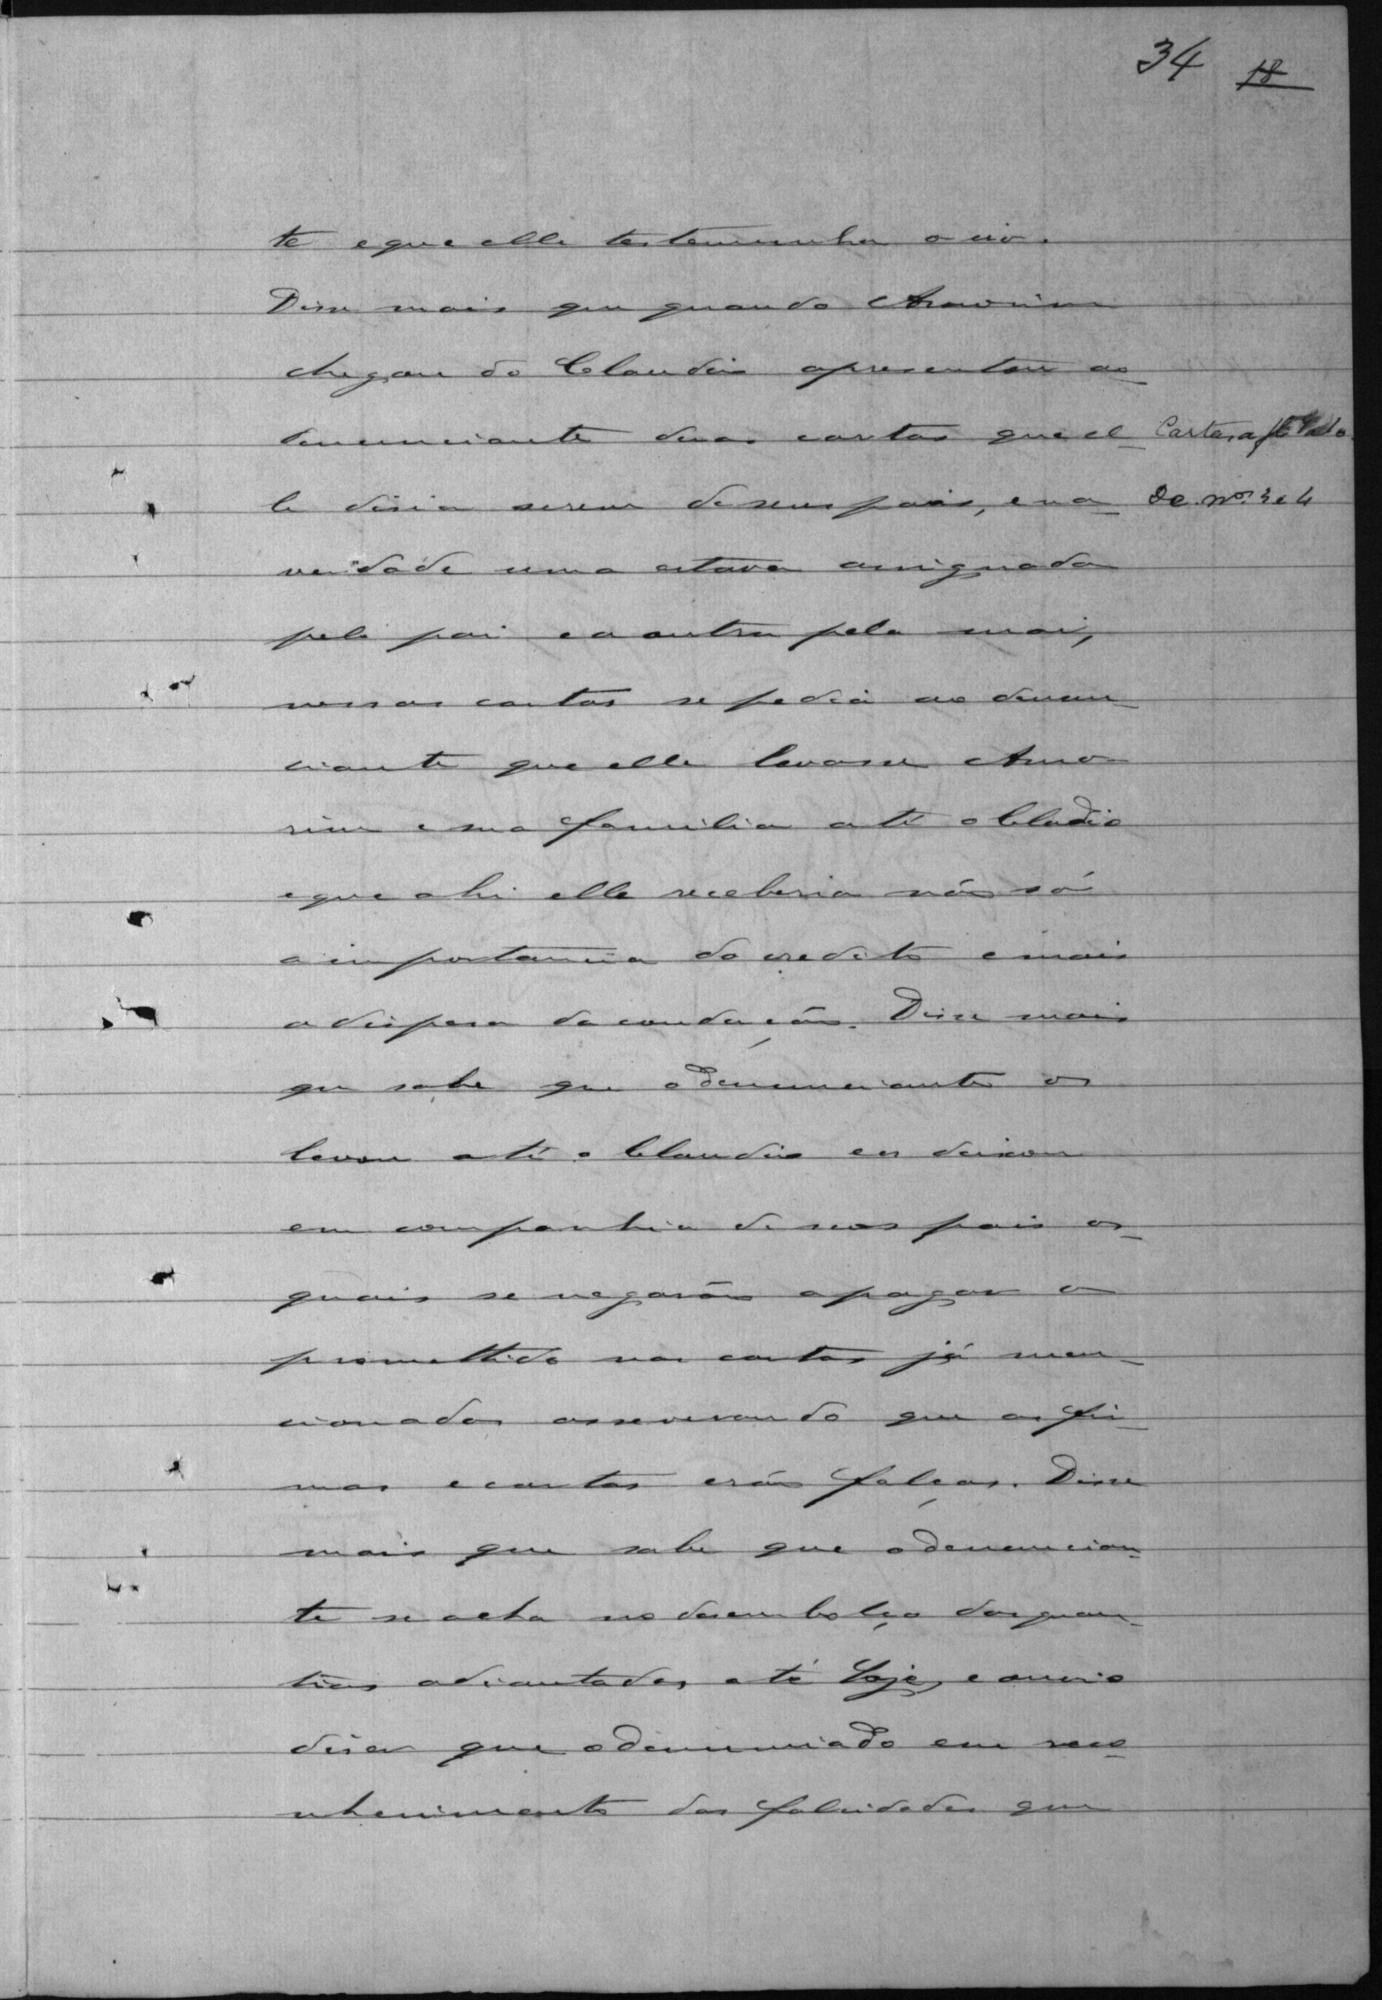 34 18
te e que elle testemunha o vio.
Disse mais que quando Amorim
chegou do Claudio apresentou ao
denunciante duas cartas que el-
le disia serem de seus pais, e na
verdade uma estava assignada
pelo pai e a outra pela mai,
nessas cartas se pedia ao denun-
ciante que elle levasse Amo-
rim e sua familia até o Cladio
e que ahi elle receberia não só
a importancia do credito e mais
a dispesa da condução. Disse mais
que sabe que o denunciante os
levou até o Claudio e os deixou
em companhia de seos pais os-
quais se negarão a pagar o
promettido nas cartas já men-
cionadas asseverando que as fir-
mas e cartas erão falças. Disse
mais que sabe que o denuncian-
te se acha no desembolço das quan-
tias adiantadas até hoje, e ouvio
diser que o denunciado em reco-
nhecimento das falsidades que
Cartas a fl
De nos. 3 e 4